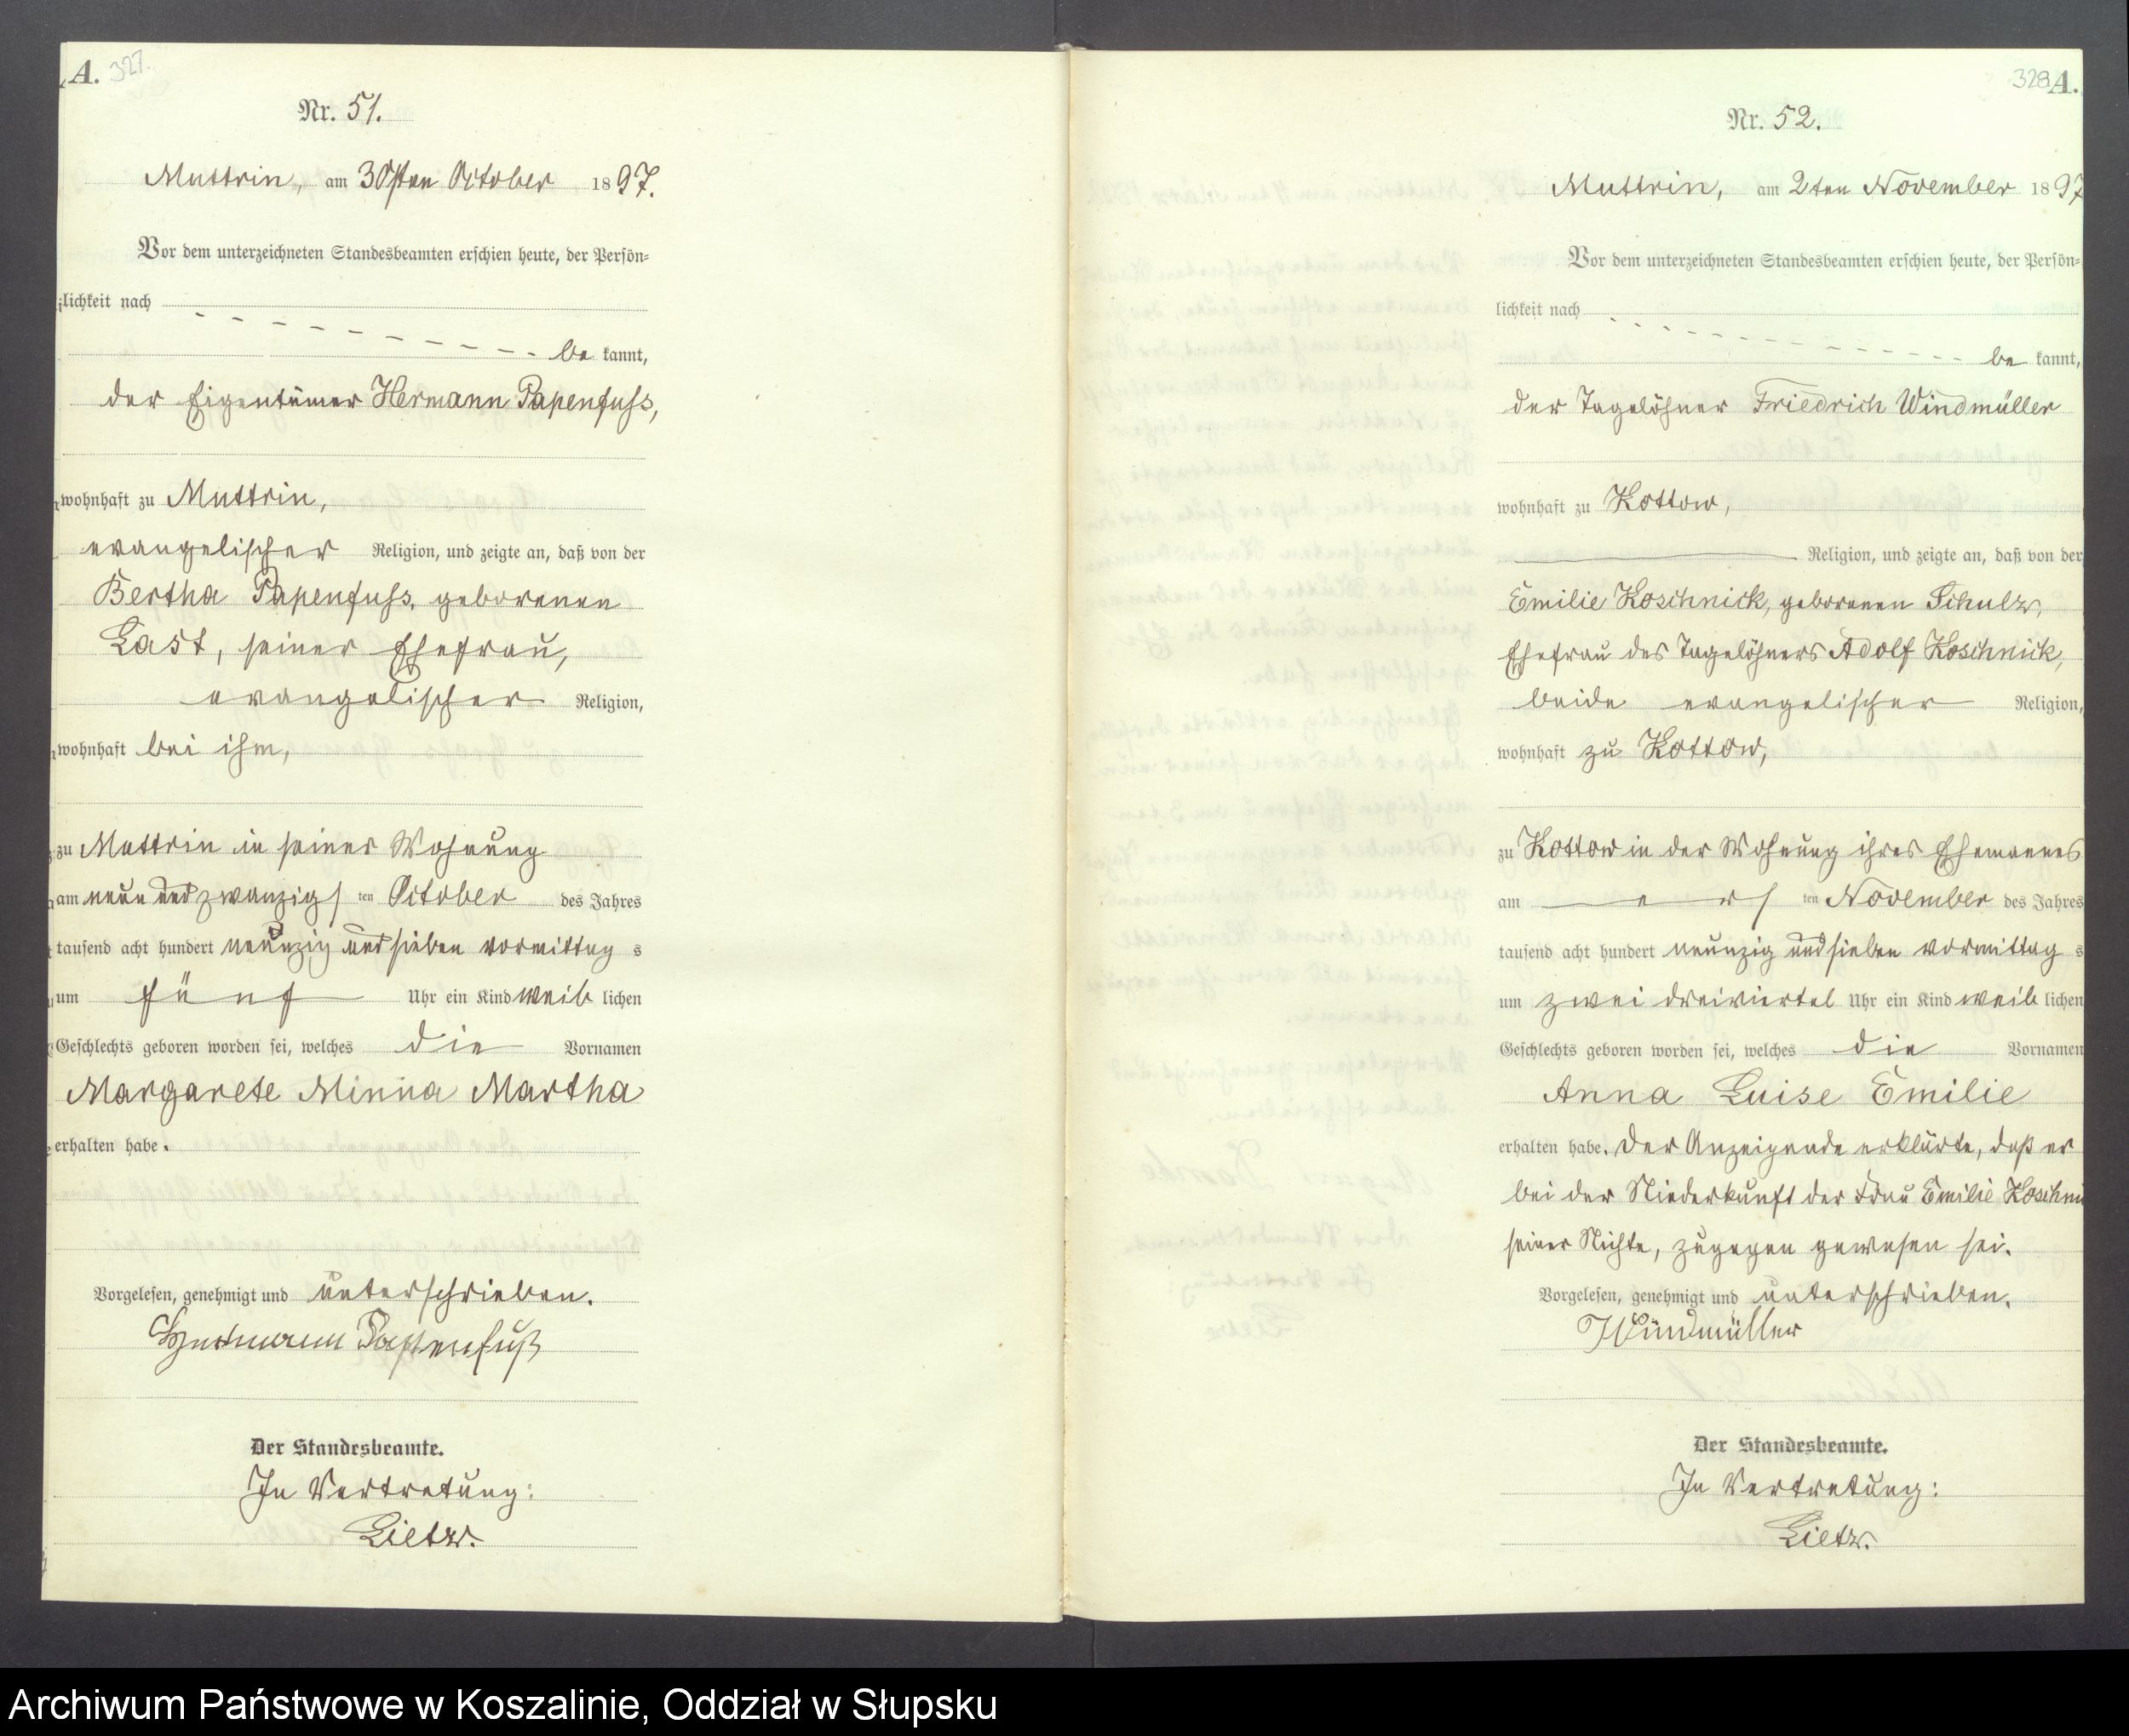 A. 327.
Nr. 51.
Muttrin, am 30sten October 1897.
Vor dem unterzeichneten Standesbeamten erschien heute, der Persön=
lichkeit nach
be kannt,
der Eigentümer Hermann Papenfuss,
wohnhaft zu Muttrin,
evangelischer Religion, und zeigte an, daß von der
Bertha Papenfuss, geborenen
Last, seiner Ehefrau,
evangelischer Religion,
wohnhaft bei ihm,
zu Muttrin in seiner Wohnung
am neun und zwanzigs ten October des Jahres
tausend acht hundert neunzig und sieben vormittag s
um fünf Uhr ein Kind weib lichen
Geschlechts geboren worden sei, welches die Vornamen
Margarete Minna Martha
erhalten habe.
Vorgelesen, genehmigt und unterschrieben.
Hermann Papenfuß
Der Standesbeamte.
In Vertretung:
Lietz.
328 A.
Nr. 52.
Muttrin, am 2ten November 1897
Vor dem unterzeichneten Standesbeamten erschien heute, der Persön=
lichkeit nach
be kannt,
der Tagelöhner Friedrich Windmüller
wohnhaft zu Kottow,
Religion, und zeigte an, daß von der
Emilie Koschnick, geborenen Schulz,
Ehefrau des Tagelöhners Adolf Koschnick,
beide evangelischer Religion,
wohnhaft zu Kottow,
zu Kottow in der Wohnung ihres Ehemannes
am ers ten November des Jahres
tausend acht hundert neunzig und sieben vormittag s
um zwei dreiviertel Uhr ein Kind weib lichen
Geschlechts geboren worden sei, welches die Vornamen
Anna Luise Emilie
erhalten habe. Der Anzeigende erklärte, daß er
bei der Niederkunft der Frau Emilie Koschni
seiner Nichte, zugegen gewesen sei.
Vorgelesen, genehmigt und unterschrieben.
Windmüller
Der Standesbeamte.
In Vertretung:
Lietz.
Archiwum Państwowe w Koszalinie, Oddział w Słupsku